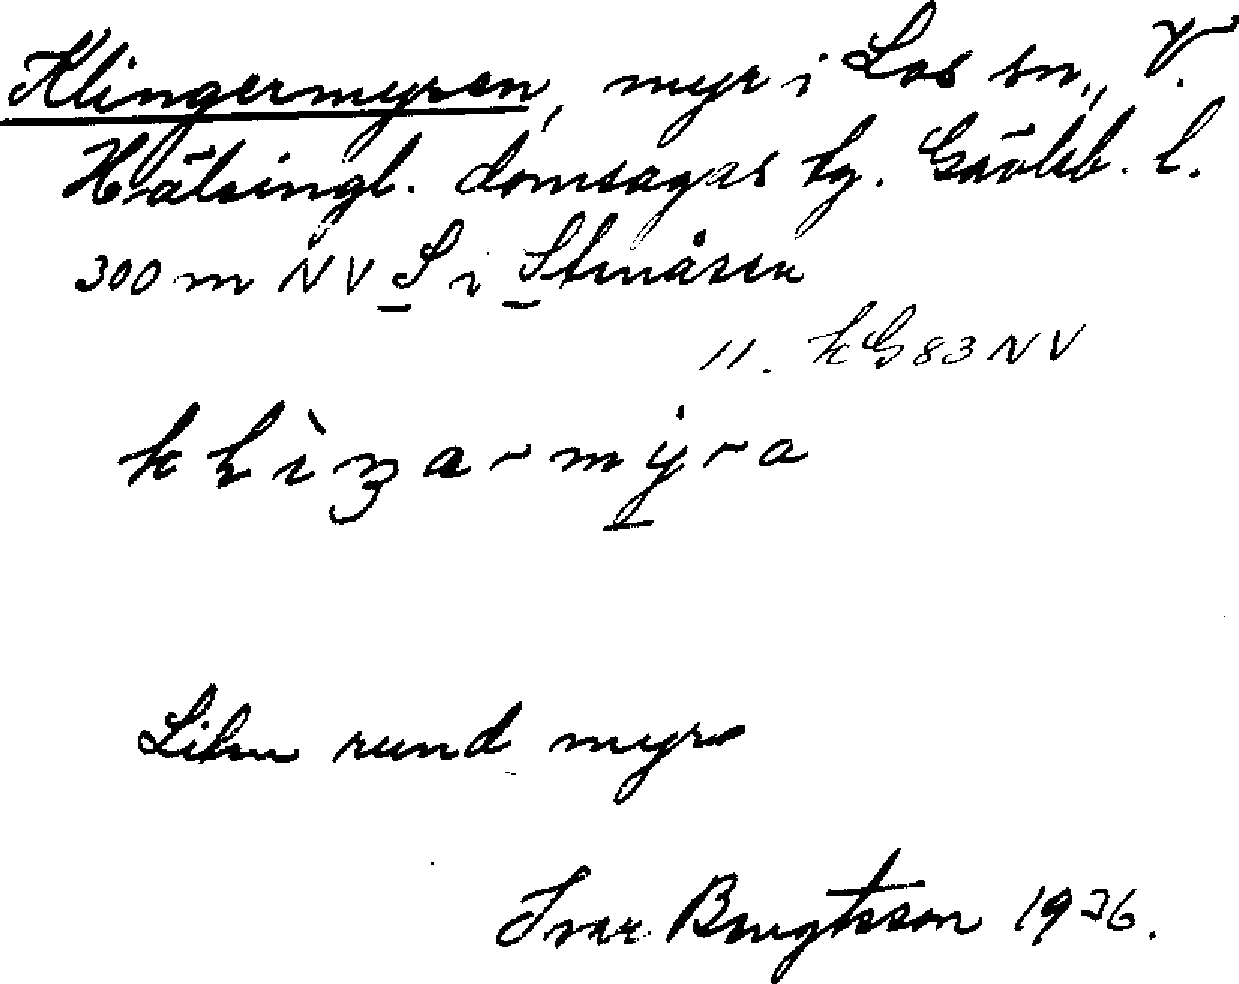 Klingermyren, myr i Los sn, V.
Hälsingl. domsagas tg. Gävleb. l.
300 m NV S i Stenåsen
11. kG83NV
Liten rund myr
Ivar Bengtsson 1936.